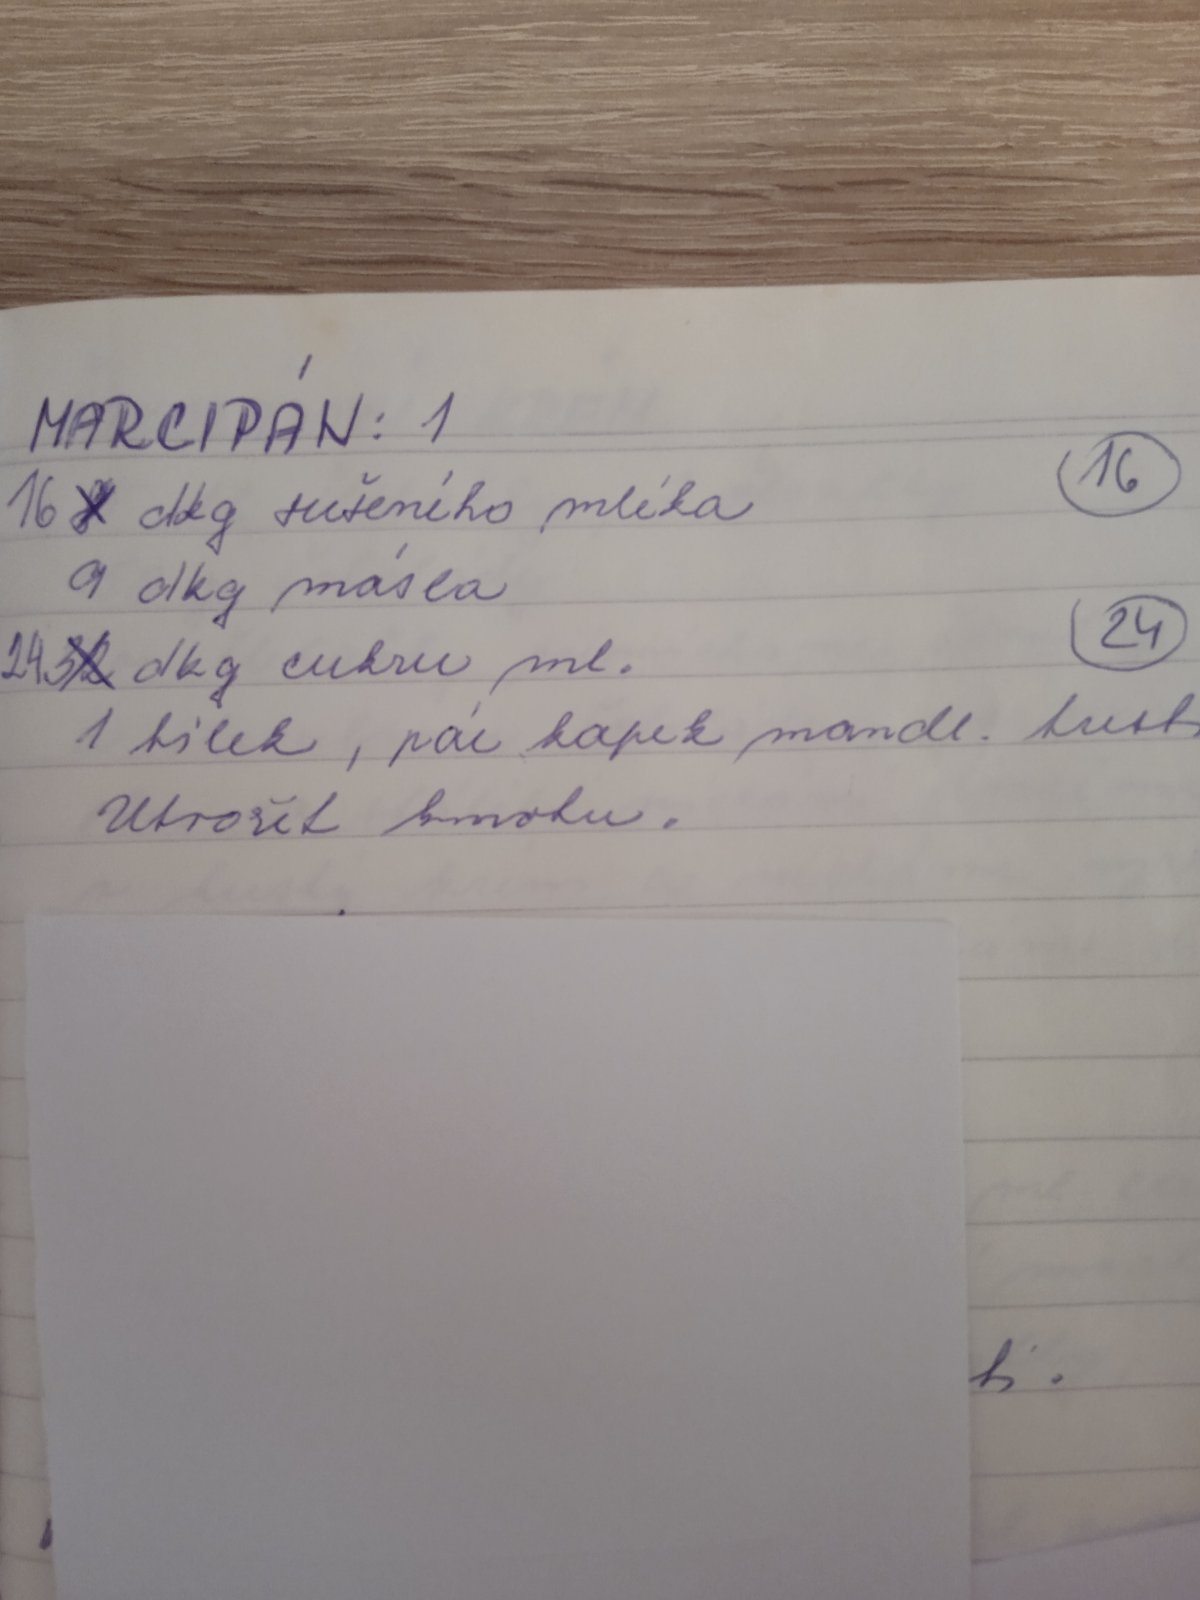 MARCIPÁN: 1
16 dkg sušeného mléka 16
9 dkg másla
24 32 dkg cukru ml. 24
1 bílek, pár kapek mandl. trest
Utvořit hmotu.